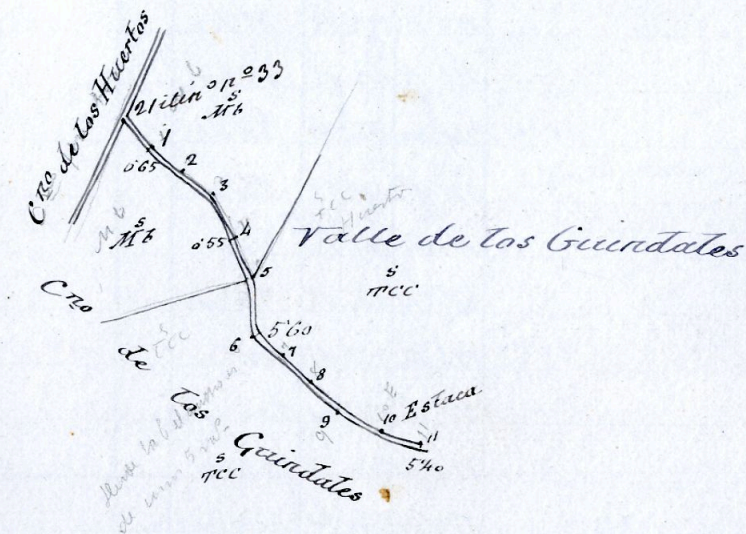 Cno de los Huertos
2 itino nº 33
s
Mb
1
0'65
2
3
s
Mb
0'55
4
Valle de los Guindales
5
s
TCC
Cno de los Guindales
5'60
6
7
8
9
10 Estaca
11
5'40
s
TCC